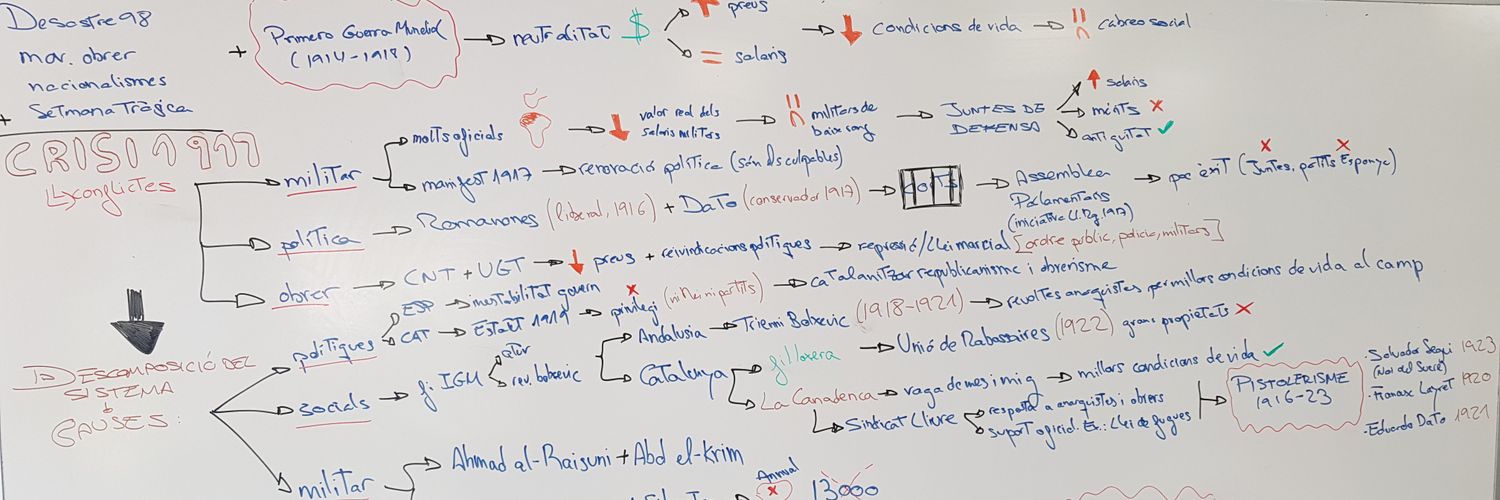 Desastre 98
mov. obrer
nacionalismes
+ Setmana Tràgica
+ Primera Guerra Mundial
(1914-1918)
→ neutralitat $
↑ preus
= salaris
→ ↓ condicions de vida → cabreo social
CRISI 1917
↳ conflictes
militar
molts oficials → ↓ valor real dels
salaris militars
→ militars de
baix rang
→ JUNTES DE
DEFENSA
↑ salaris
mèrits X
antiguitat ✓
manifest 1917 → renovació política (són els culpables)
política → Romanones (liberal, 1916) + Dato (conservador 1917) → CORTS → Assemblea
Parlamentaris
(iniciativa Ll. Rg. 1917)
→ poc èxit (Juntes, partits Espanya)
X X
obrer → CNT + UGT → ↓ preus + reivindicacions polítiques → repressió/Llei marcial [ordre públic, policia, militars]
DESCOMPOSICIÓ DEL
SISTEMA
CAUSES:
polítiques
ESP → inestabilitat govern
CAT → Estatut 1919 → privilegi (ni rei ni partits) → catalanitzar republicanisme i obrerisme
X
socials → fi IGM
atur
rev. bolxevic
Andalusia → Trienni Bolxevic (1918-1921) → revoltes anarquistes per millors condicions de vida al camp
grans propietats X
Catalunya
fil·loxera → Unió de Rabassaires (1922)
La Canadenca → vaga de mes i mig → millors condicions de vida ✓
↳ Sindicat Lliure
resposta a anarquistes i obrers
suport oficial. Ex.: Llei de fugues
→ PISTOLERISME
1916-23
· Salvador Seguí 1923
(Noi del Sucre)
· Francesc Layret 1920
· Eduardo Dato 1921
militar → Ahmad al-Raisuni + Abd el-Krim
Annual
X
13000